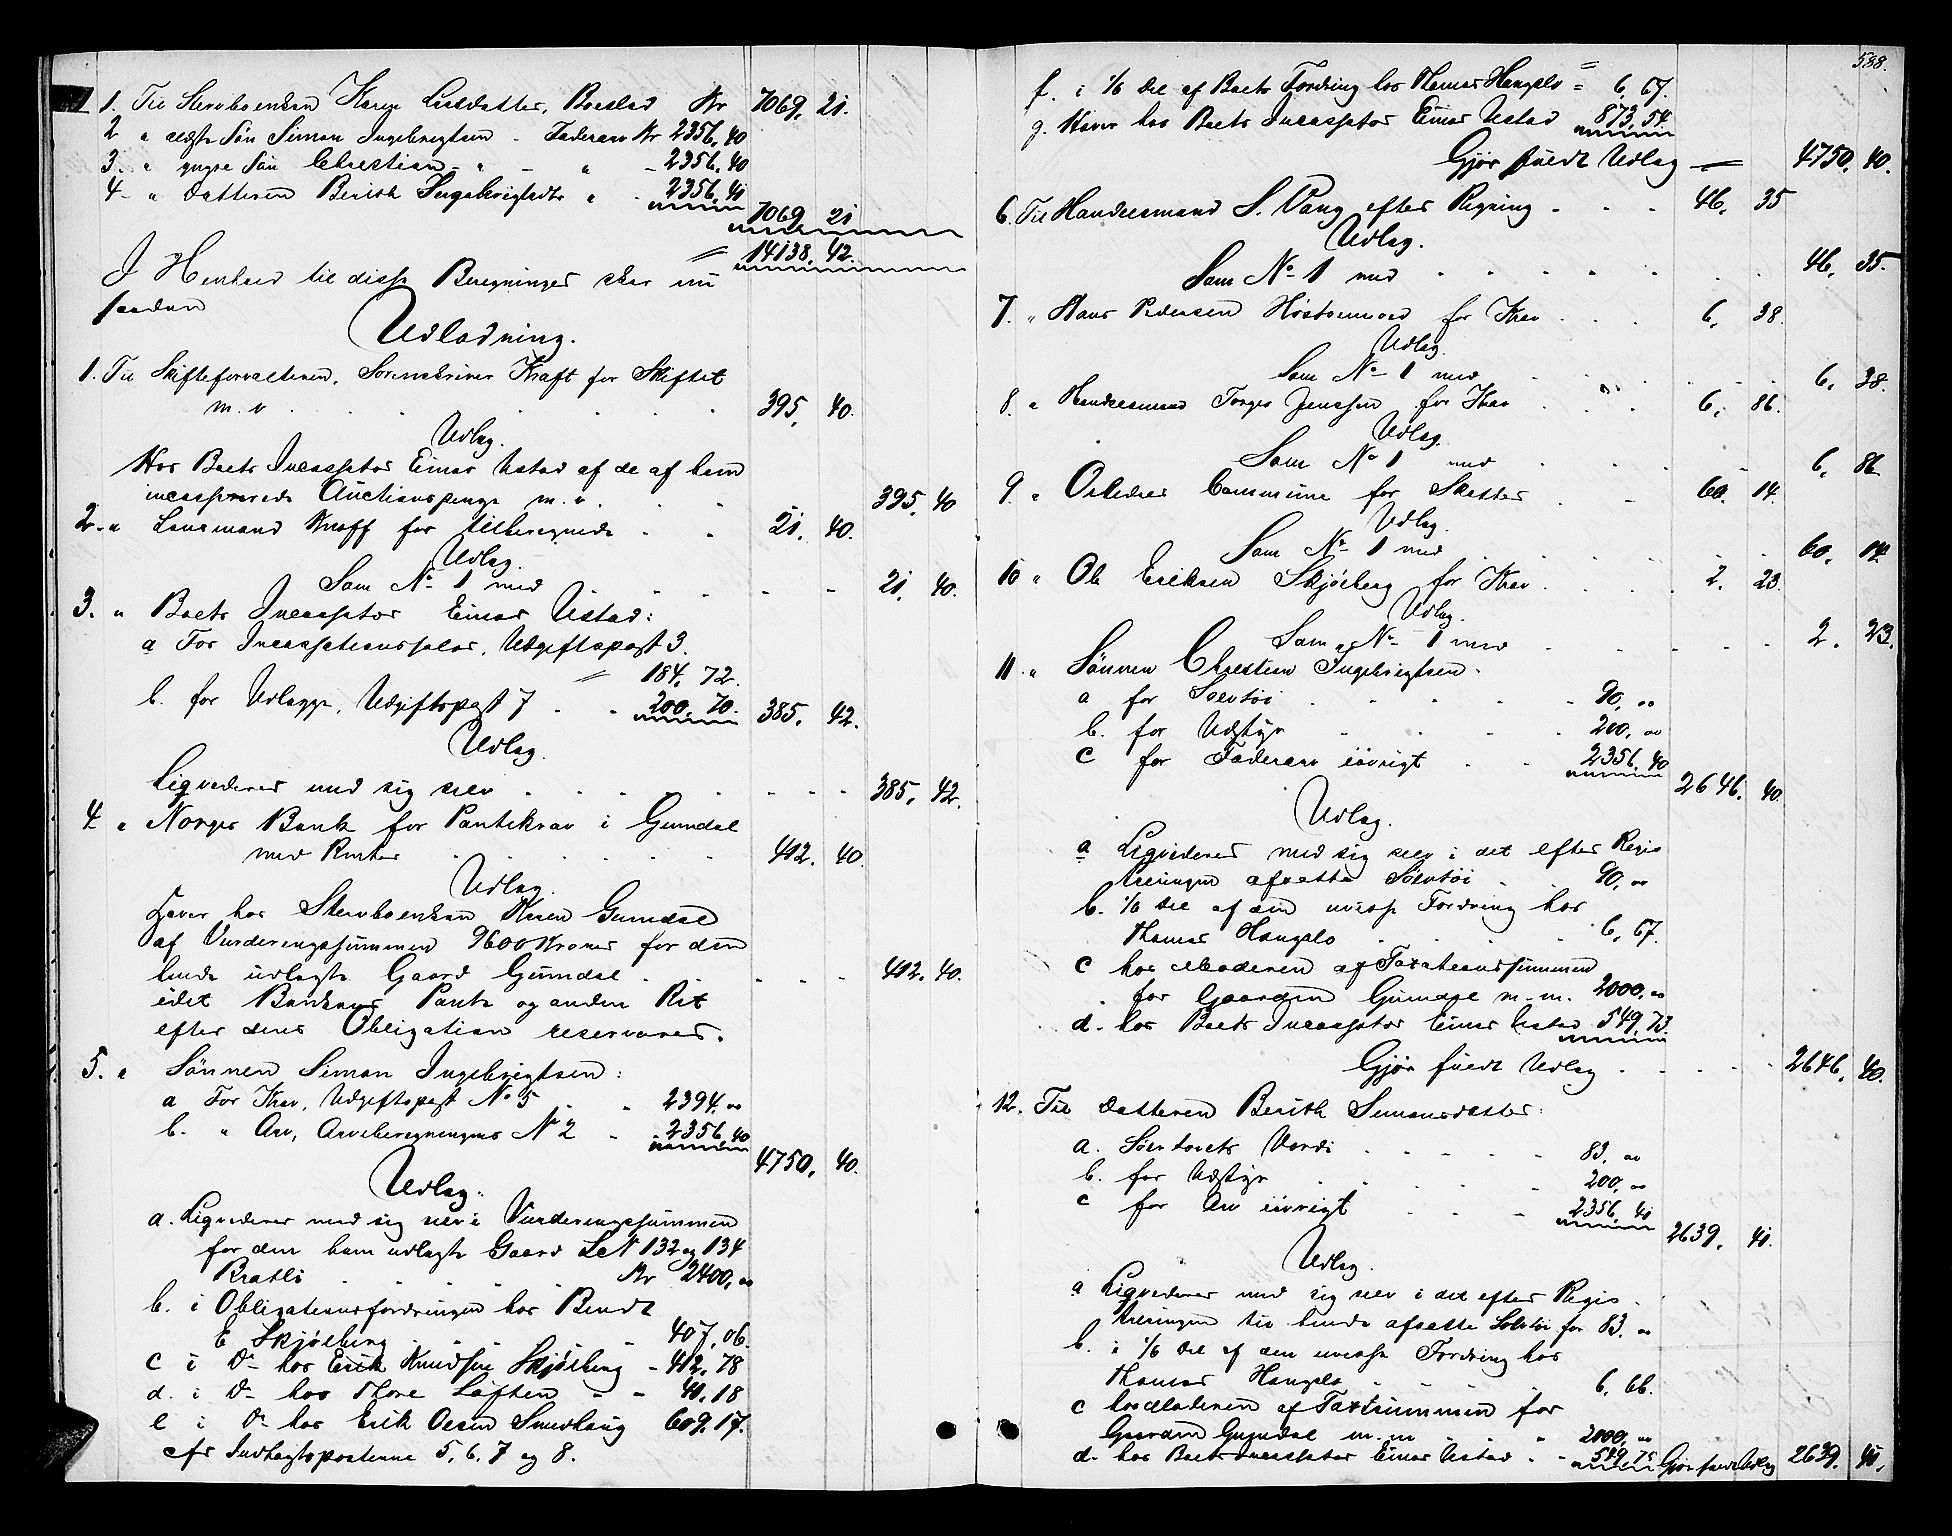 1. Til Stervboenken Karen Larsdatter, Boeslod Kr 7069. 21.
2 " ældste Søn Simon Ingebrigtsen - Faderarv Kr 2356. 40
3. " yngre Søn Christian - " - " - 2356. 40
4 - " Datteren Berith Ingebrigtsdtr " - 2356. 41
7069 21
14138. 42.
I Henhold til disse Beregninger sker nu
saadan
Udlodning.
1. Til Skifteforvalteren, Sorenskriver Kraft for Skiftet
m. v. 395. 40.
Udlæg.
Hos Boets Incassator Einar Ustad af de af ham
incasserede Auctionspenge m. v. 395. 40
2. " Lensmand Knoff for tilberegnede 21. 40.
Udlæg.
Som No 1 med 21. 40.
3. " Boets Incassator Einar Ustad:
a For Incassationssalær, Udgiftspost 3.
184. 72.
b. for Udlægge, Udgiftspost 7 - - 200. 70. 385. 42.
Udlæg.
Liqviderer med sig selv 385. 42.
4. " Norges Bank for Pantekrav i Gumdal
med Renter 412. 40
Udlæg.
Hæver hos Stervboenken Karen Gumdal
af Vurderingssummen 9600 Kroner for den
hende udlagte Gaard Gumdal 412. 40.
idet Bankens Pant og anden Ret
efter dens Obligation reserveres.
5. " Sønnen Simon Ingebrigtsen:
a For Krav, Udgiftspost No 5 2394. "
b. " Arv, Arveberegningens No 2 2356. 40
4750. 40.
Udlæg:
a. Liqviderer med sig selv i Vurderingssummen
for den ham udlagte Gaard LN 132 og 134
Bratli Kr 2400. "
b. i Obligationsfordringen hos Bendt
E Skjølberg 407. 06.
c i Do hos Erik Knudsen Skjølberg - 412. 78
d. i Do hos Thore Løften - - 41. 18
e i Do hos Erik Olsen Smedhaug 609. 17.
cfr Indtægtsposterne 5, 6, 7 og 8.
588.
f. i 1/6 Del af Boets Fordring hos Thomas Hangslo = 6. 67.
g. Hæver hos Boets Incassator Einar Ustad 873. 54.
Gjør fuldt Udlæg - 4750. 40.
6. Til Handelsmand S. Vang efter Regning - - - 46. 35
Udlæg.
Som No 1 med 46. 35.
7. " Hans Pedersen for Krav 6. 38.
Udlæg.
Som No 1 med 6. 38.
8. " Handelsmand Torger Jenssen for Krav 6. 86.
Udlæg.
Som No 1 med 6. 86
9. " Orkedals Commune for Skatter 60. 14.
Udlæg.
Som No 1 med 60. 14.
10 " Ole Eriksen Skjølberg for Krav 2. 23.
Udlæg.
Som No 1 med 2. 23.
11. " Sønnen Christian Ingebrigtsen.
a for Sølvtøi 90. "
b. for Udstyr 200. "
c for Fadererv iøvrigt 2356. 40
2646. 40.
Udlæg.
a Liqviderer med sig selv i det efter Regis
treringen afsatte Sølvtøi 90. "
b. 1/6 Del af den uvisse Fordring hos
Thomas Hangslo 6. 67.
c hos Moderen af Taxationssummen
for Gaarden Gumdal m. m. 2000. "
d. hos Boets Incassator Einar Ustad 549. 73.
Gjør fuldt Udlæg 2646. 40.
12. Til Datteren Berith Simonsdatter:
a. Sølvtøiets Værdi 83. "
b. for Udstyr 200. "
c for Arv iøvrigt 2356. 41
2639. 41.
Udlæg.
a Liqviderer med sig selv i det efter Regis
treringen til hende afsatte Sølvtøi for 83. "
b. i 1/6 Del af den uvisse Fordring hos
Thomas Hangslo 6. 66.
c hos Moderen af Taxtsummen for
Gaarden Gumdal m. m 2000. "
d. hos Boets Incassator Einar Ustad - - 549. 75 Gjør fuldt Udlæg 2639. 41.